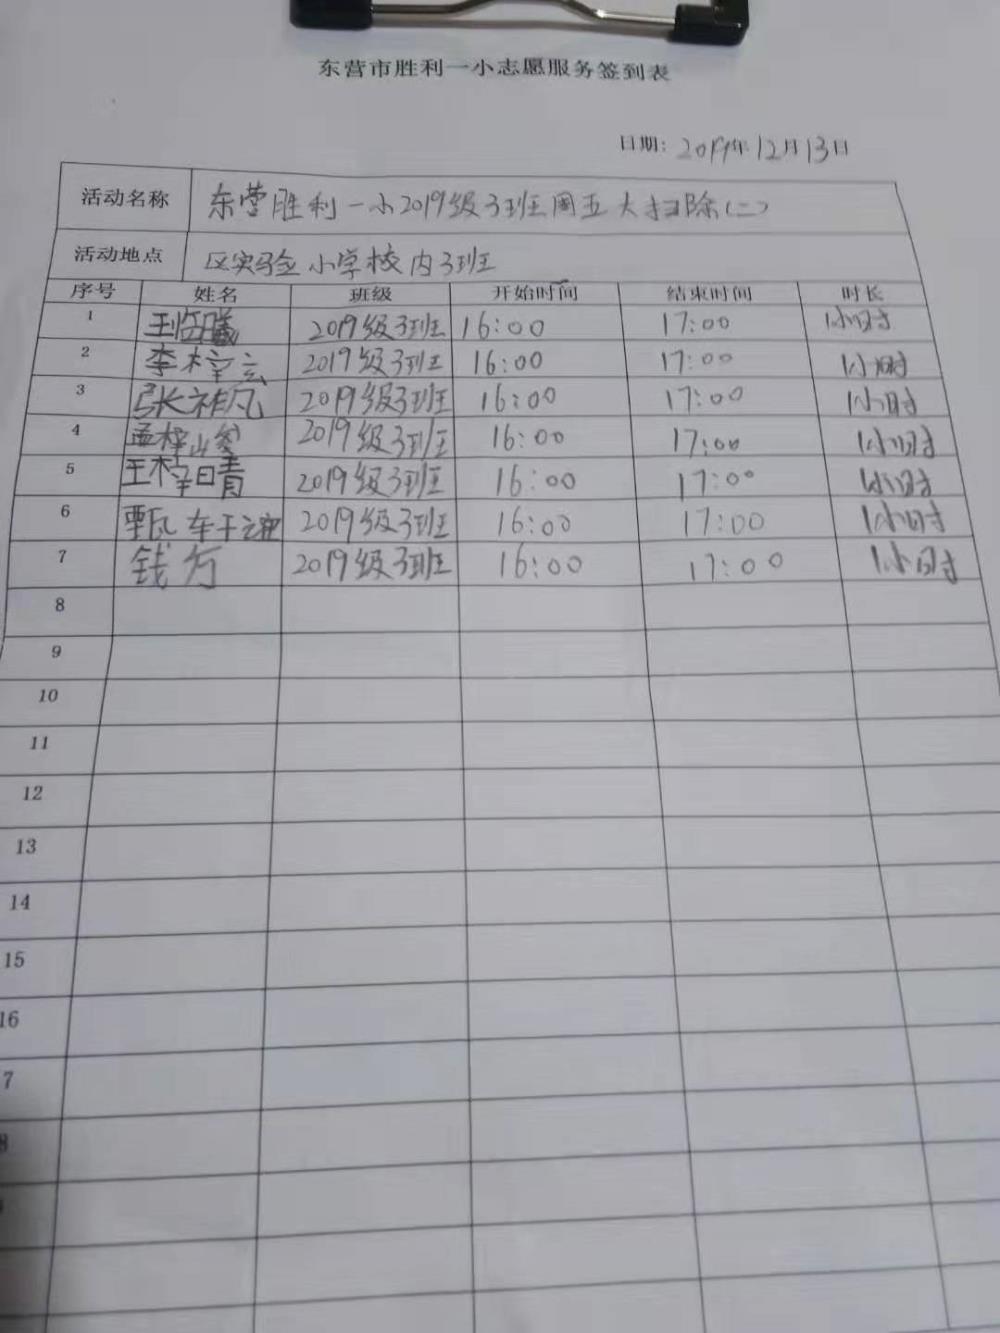 东营市胜利一小志愿服务签到表
日期: 2019年12月13日
活动名称 东营胜利一小2019级3班周五大扫除(二)
活动地点 区实验小学校内3班
序号 姓名 班级 开始时间 结束时间 时长
1 王临曦 2019级3班 16:00 17:00 1小时
2 李梓宏 2019级3班 16:00 17:00 1小时
3 张祚凡 2019级3班 16:00 17:00 1小时
4 孟梓 2019级3班 16:00 17:00 1小时
5 王梓晴 2019级3班 16:00 17:00 1小时
6 甄 2019级3班 16:00 17:00 1小时
7 钱方 2019级3班 16:00 17:00 1小时
8
9
10
11
12
13
14
15
16
7
8